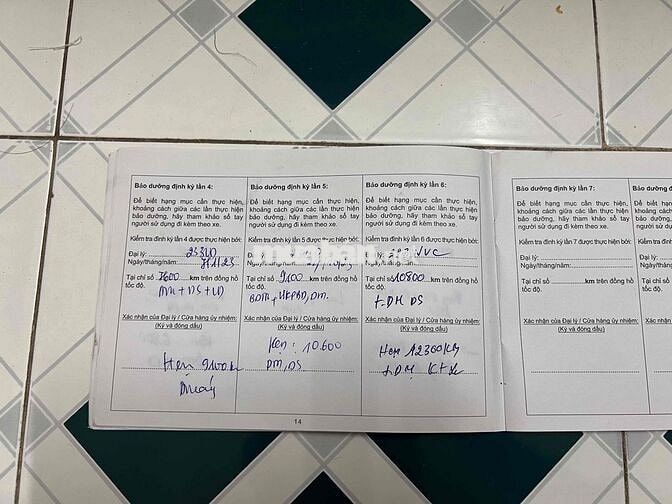 Bảo dưỡng định kỳ lần 4:
Để biết hạng mục cần thực hiện,
khoảng cách giữa các lần thực hiện
bảo dưỡng, hãy tham khảo sổ tay
người sử dụng đi kèm theo xe.
Kiểm tra định kỳ lần 4 được thực hiện bởi:
Đại lý:
Ngày/tháng/năm:
Tại chỉ số 7600 km trên đồng hồ
tốc độ.
Xác nhận của Đại lý / Cửa hàng ủy nhiệm:
(Ký và đóng dấu)
Hẹn 9100k
Bảo dưỡng định kỳ lần 5:
Để biết hạng mục cần thực hiện,
khoảng cách giữa các lần thực hiện
bảo dưỡng, hãy tham khảo sổ tay
người sử dụng đi kèm theo xe.
Kiểm tra định kỳ lần 5 được thực hiện bởi:
Đại lý:
Ngày/tháng/năm:
Tại chỉ số 9100 km trên đồng hồ
tốc độ.
Xác nhận của Đại lý / Cửa hàng ủy nhiệm:
(Ký và đóng dấu)
Hẹn: 10.600
DM, DS
Bảo dưỡng định kỳ lần 6:
Để biết hạng mục cần thực hiện,
khoảng cách giữa các lần thực hiện
bảo dưỡng, hãy tham khảo sổ tay
người sử dụng đi kèm theo xe.
Kiểm tra định kỳ lần 6 được thực hiện bởi:
Đại lý:
Ngày/tháng/năm:
Tại chỉ số 10800 km trên đồng hồ
tốc độ.
+ DM DS
Xác nhận của Đại lý / Cửa hàng ủy nhiệm:
(Ký và đóng dấu)
Hẹn 12300 Km
14
Bảo dưỡng định kỳ lần 7:
Để biết hạng mục cần thực hiện,
khoảng cách giữa các lần thực hiện
bảo dưỡng, hãy tham khảo sổ tay
người sử dụng đi kèm theo xe.
Kiểm tra định kỳ lần 7 được thực hiện bởi:
Đại lý:
Ngày/tháng/năm:
Tại chỉ số km trên đồng hồ
tốc độ.
Xác nhận của Đại lý / Cửa hàng ủy nhiệm:
(Ký và đóng dấu)